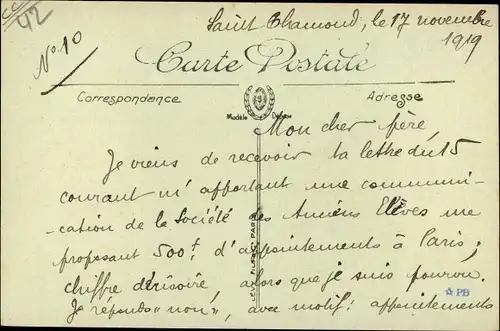 42
Saint Chamond, le 17 novembre
1919
N° 10
Carte Postale
Correspondance
Adresse
Modèle Déposé
Mon cher père,
Je viens de recevoir ta lettre du 15
courant m'apportant une communi-
cation de la Société des Anciens Elèves me
proposant 500f. d'appointements à Paris;
chiffre dérisoire, alors que je suis pourvu.
Je réponds "non", avec motif: appointements
PB